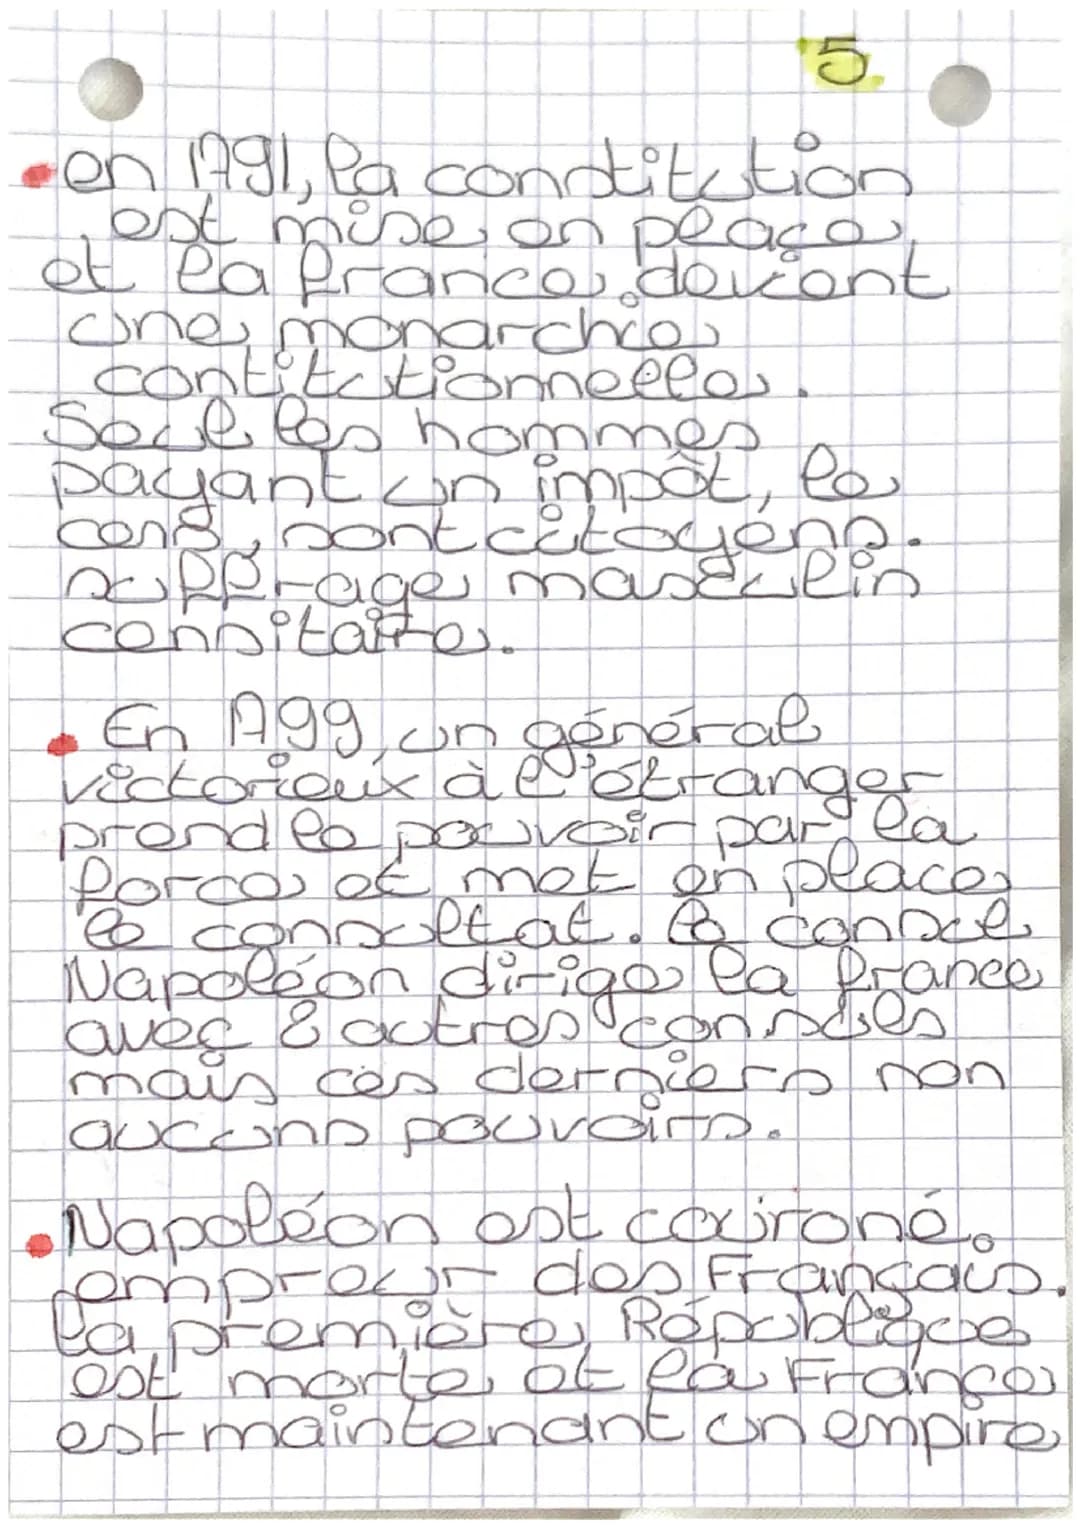 5
en 1791, la constitution
est mise en place
et la france devient
une monarchie
contitutionnelle.
Seul les hommes
payant un impôt, le
cens, sont citoyens.
suffrage masculin
censitaire.
En 1799 un général
victorieux à l'étranger
prend le pouvoir par la
force et met en place
le consultat. le consul
Napoléon dirige la france
avec 2 autres consuls
mais ces derniers non
aucuns pouvoirs.
Napoléon est couroné
empreur des Français.
la première République
est morte et la France
est maintenant un empire